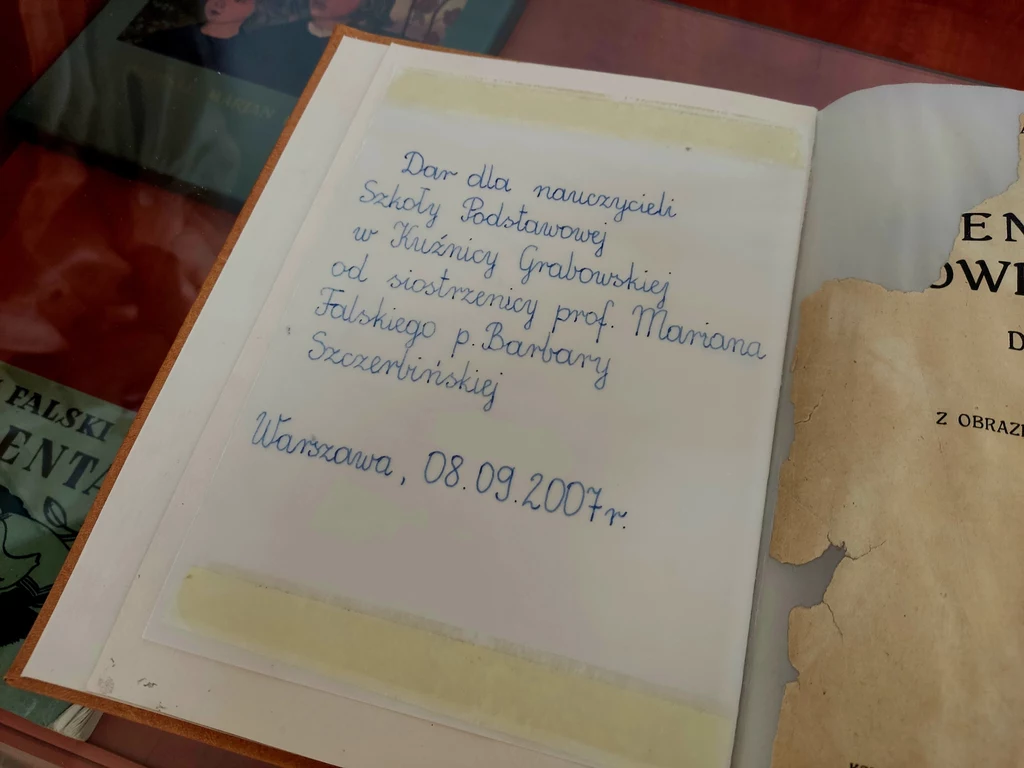 Dar dla nauczycieli
Szkoły Podstawowej
w Kuźnicy Grabowskiej
od siostrzenicy prof. Mariana
Falskiego p. Barbary
Szczerbińskiej
Warszawa, 08.09.2007r.
MARJAN
FALSKI
ENTA
EN
OWI
D
Z OBRAZK